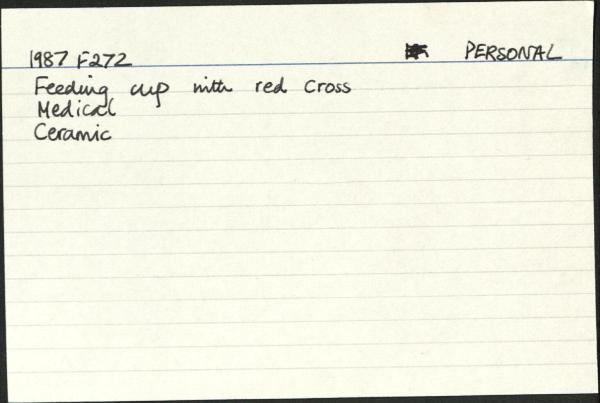 1987 F272 PERSONAL
Feeding cup with red cross
Medical
Ceramic